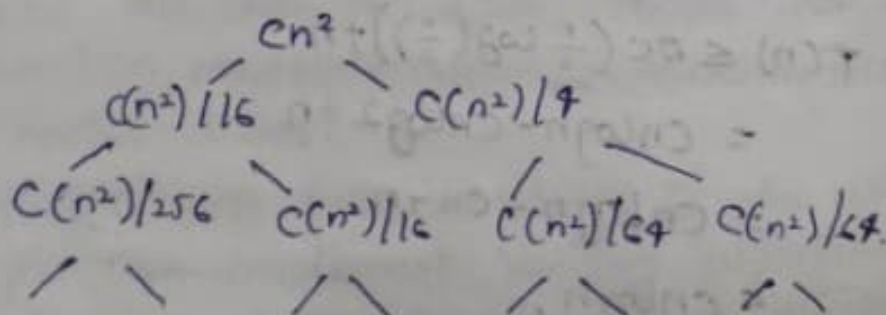 Cn²
C(n²)/16 C(n²)/4
C(n²)/256 C(n²)/16 C(n²)/64 C(n²)/64